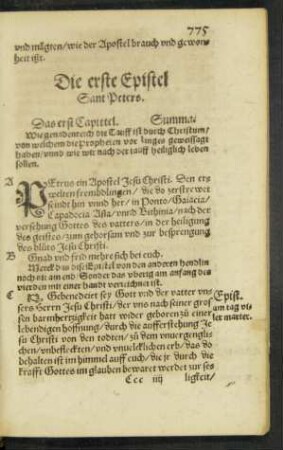 775
vnd mügten/wie der Apostel brauch vnd gewon
heit ist.
Die erste Epistel
Sant Peters.
Das erst Capittel. Summa.
Wie genadenreich die Tauff ist durch Christum/
von welchem die Propheten vor langes geweissagt
haben/vnnd wie wir nach der tauff heiliglich leben
sollen.
A PEtrus ein Apostel Jesu Christi. Den erw
welten frembdlingen/ die do zerstrewet
seindt hin vnnd her/ in Ponto/Galacia/
Capadocia Asia/vnnd Bithinia/nach der
versehung Gottes des vatters/in der heiligung
des geistes/zum gehorsam vnd zur besprengung
des blůts Jesu Christi.
B Gnad vnd frid mehre sich bey euch.
Merck das dise Epistel von den anderen
noch
vierden mit einer handt verzeichnet ist.
C Gebenedeit sey Gott vnd der vatter vn
sers Herrn Jesu Christi/der vns nach seiner gros
sen barmhertzigkeit hatt wider geboren zů einer
lebendigen hoffnung/durch die aufferstehung Je
su Christi von den todten/zů dem vnuergengli
chen/vnbefleckten/vnd vnuelcklichen erb/das do
behalten ist im himmel auff euch/die jr durch die
krafft Gottes im glauben bewaret werdet zur ses
Epist.
am tag vi
ler marter.
Ccc iiij ligkeit/